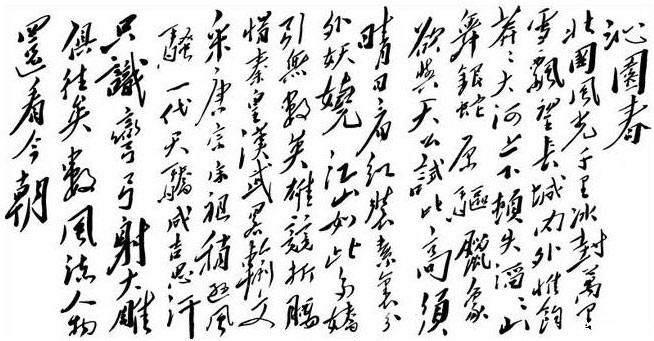 沁園春
北國風光千里冰封萬里
雪飄望長城內外惟餘
莽〻大河上下頓失滔〻山
舞銀蛇原驅臘象
欲與天公試比高須
晴日看紅裝素裹分
外妖嬈江山如此多嬌
引無數英雄競折腰
惜秦皇漢武略輸文
采唐宗宋祖稍遜風
騷一代天驕成吉思汗
只識彎弓射大雕
俱往矣數風流人物
還看今朝